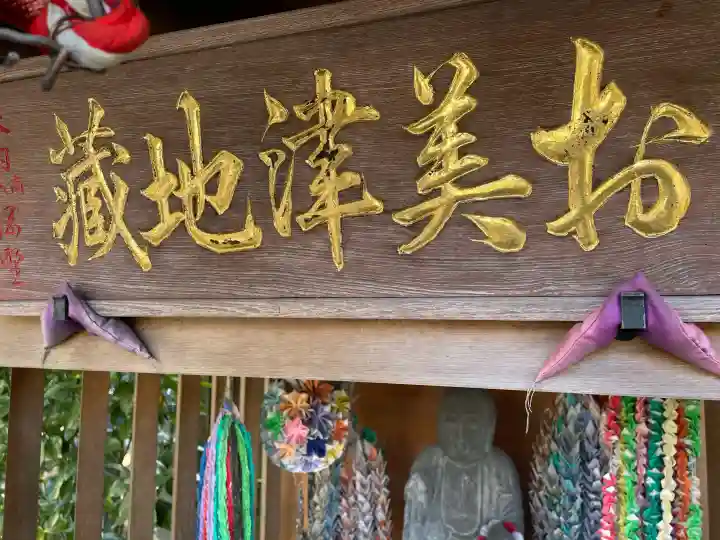 お美津地藏